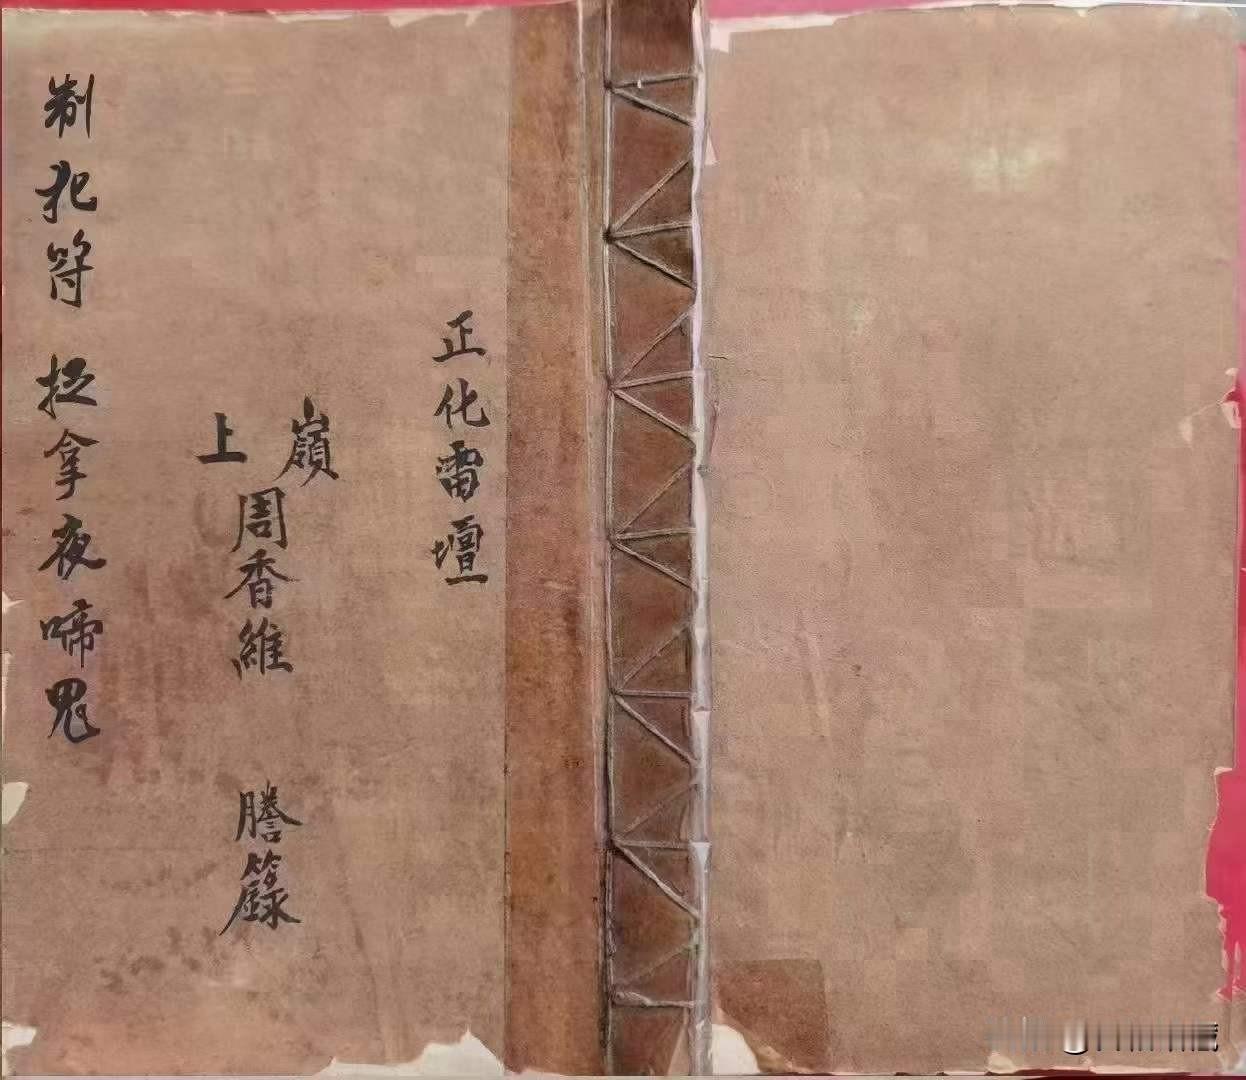 正化雷壇
嶺上
周香維 謄籙
制犯符 捉拿夜啼鬼